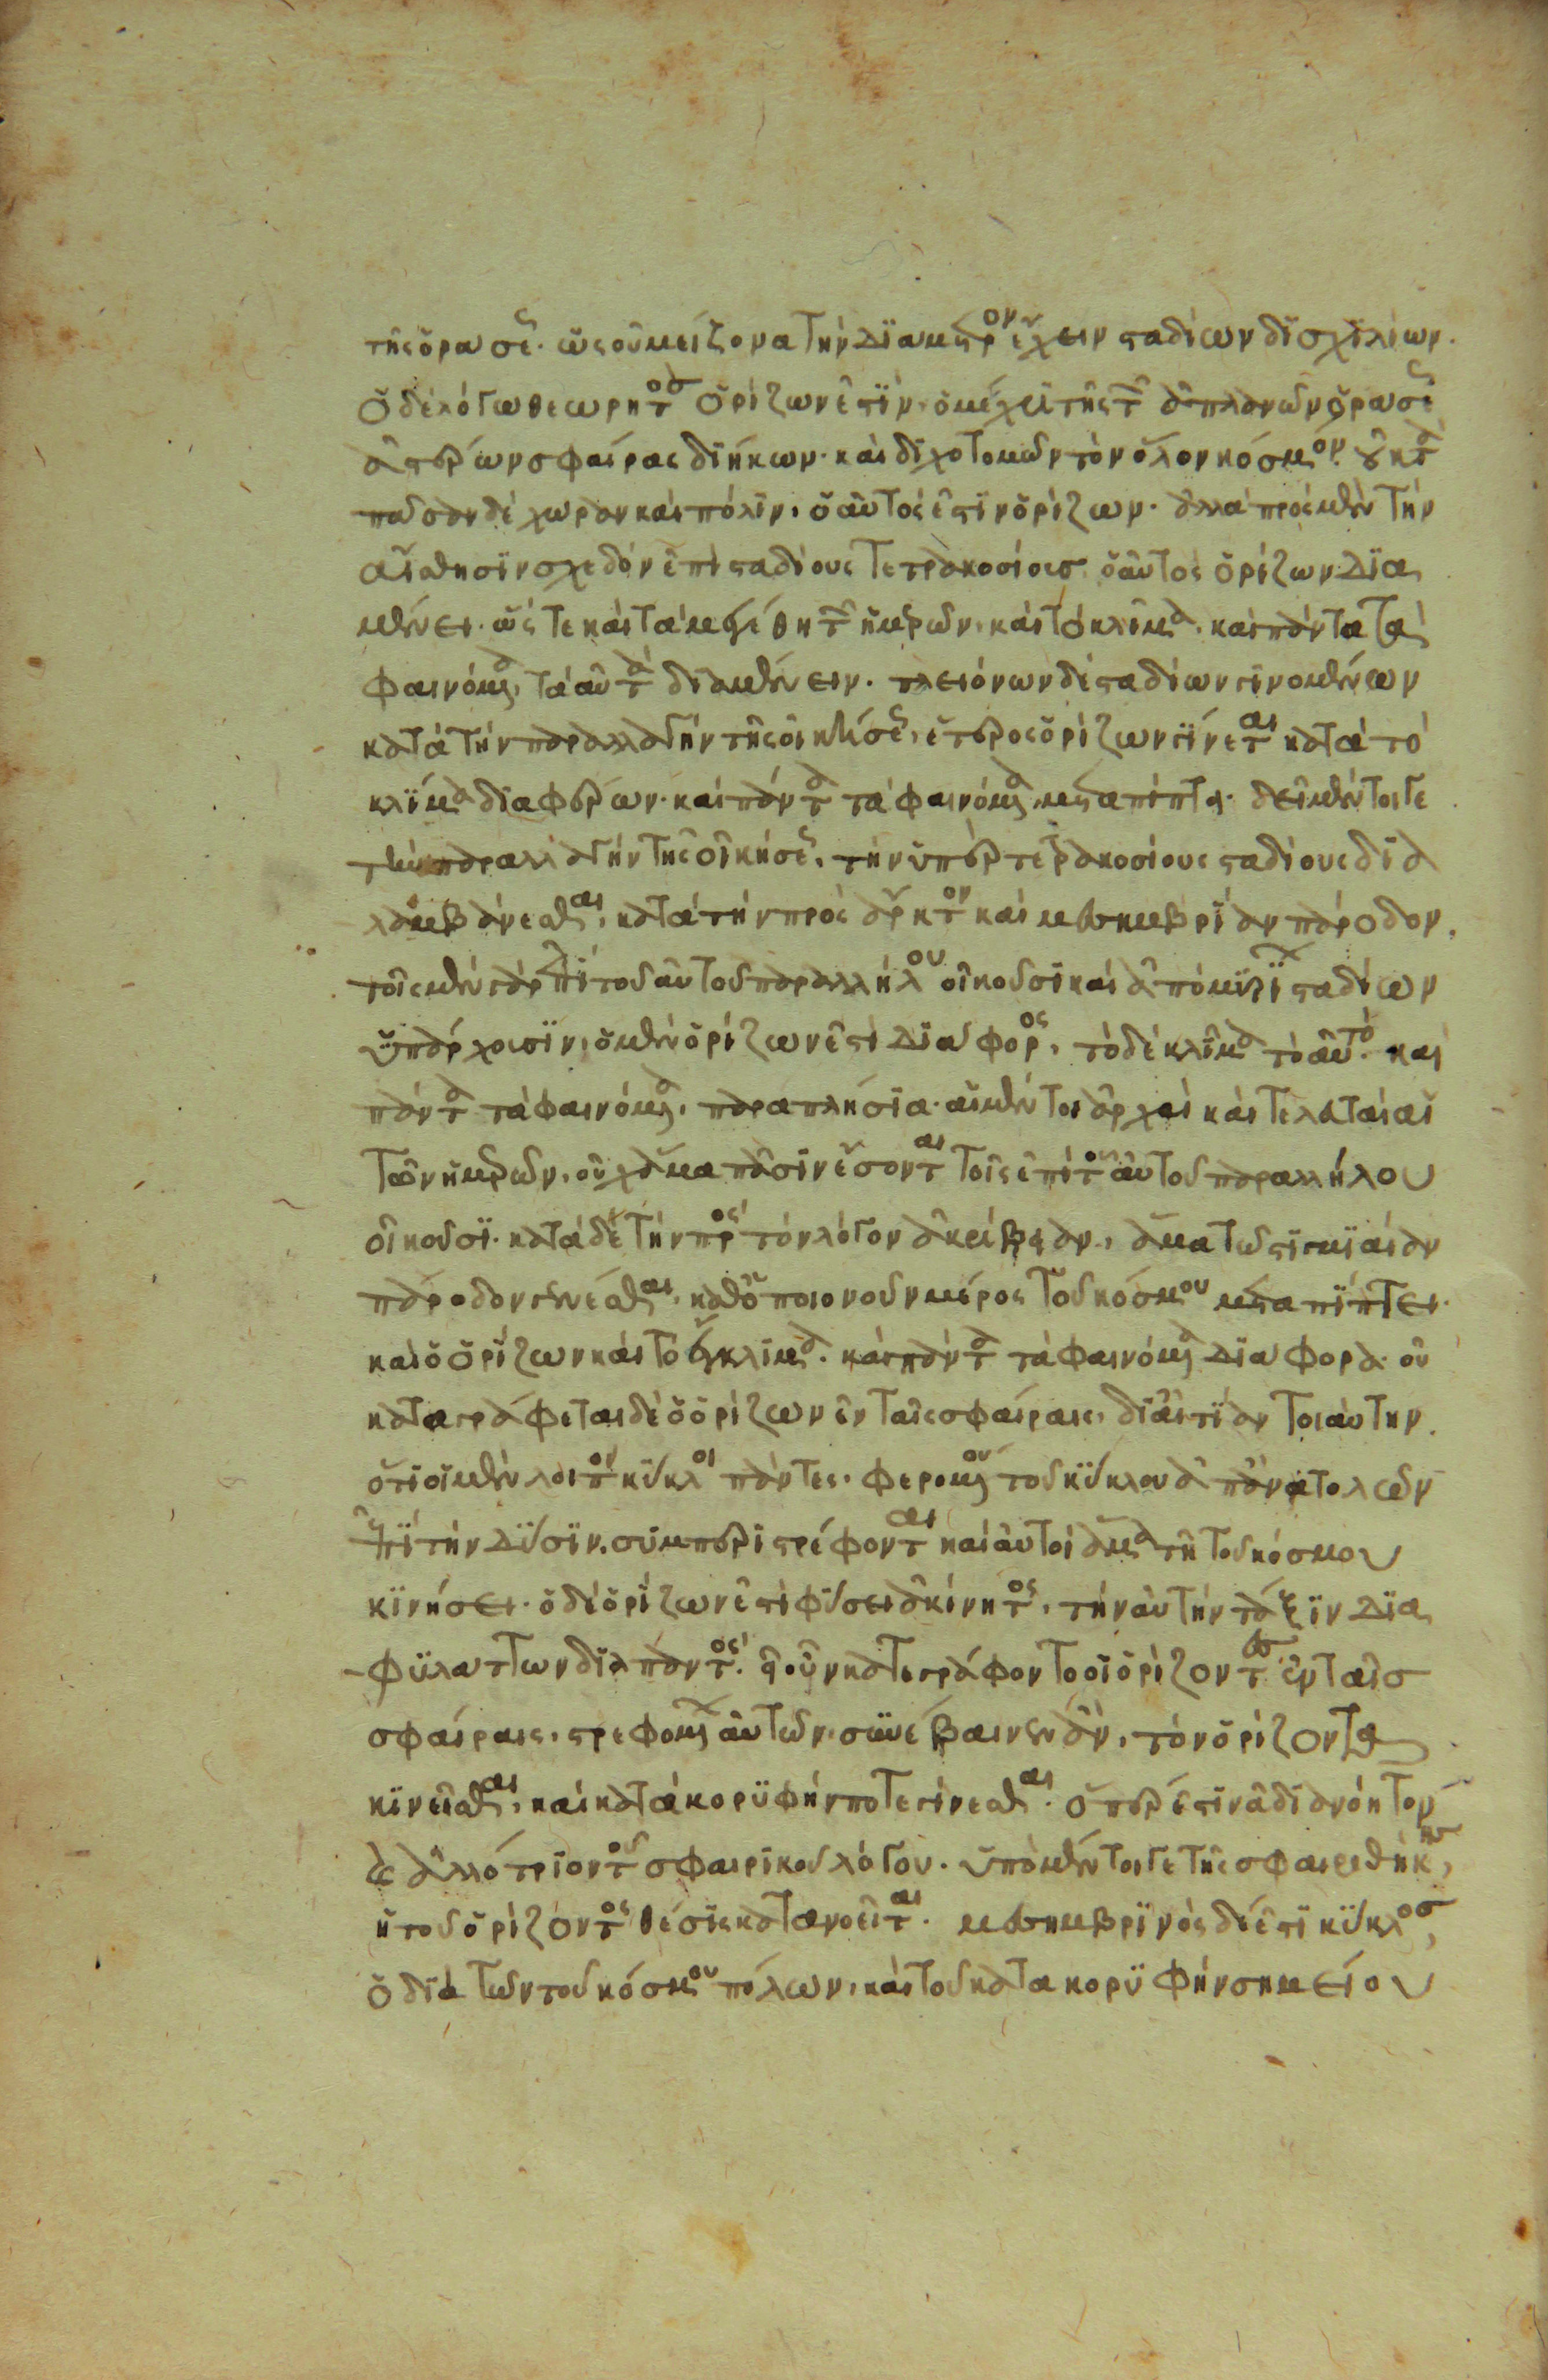 τῆς ὁράσε(ως). ὡς οὐ μείζονα τὴν διάμετρον ἔχειν σταδίων δισχιλίων.
ὁ δὲ λόγω θεωρητὸσ ὁρίζων ἐστὶν, ὁ μέχρι τῆς τῶν ἀπλανῶν ὁράσε(ως)
ἀστέρων σφαίρας διήκων. καὶ διχοτομῶν τὸν ὅλον κόσμον. οὐ κατὰ
πᾶσαν δὲ χώραν καὶ πόλιν, ὁ αὐτός ἐστιν ὁρίζων. ἀλλὰ πρὸς μὲν τὴν
αἴσθησιν σχεδὸν ἐπὶ σταδίους τετρακοσίουσ ὁ αὐτὸς ὁρίζων δια
μένει. ὥστε καὶ τὰ μεγέθη τῶν ἡμερῶν, καὶ τὸ κλῖμα, καὶ πάντα τὰ
φαινόμενα, τὰ αὐτὰ διαμένειν. πλειόνων δὲ σταδίων γινομένων
κατὰ τὴν παραλλαγὴν τῆς οἰκήσε(ως), ἕτερος ὁρίζων γίνεται κατὰ τὸ
κλίμα διαφέρων. καὶ πάντα τὰ φαινόμενα μεταπίπτει. δεῖ μέντοι γε
τὴν παραλλαγὴν τῆς οἰκήσε(ως), τὴν ὑπὲρ τετρακοσίους σταδίους δια
λαμβάνεσθαι, κατὰ τὴν πρὸς ἄρκτον καὶ μεσημβρίαν πάροδον.
τοῖς μὲν γὰρ ἐπὶ τοῦ αὐτοῦ παραλλήλου οἰκοῦσι καὶ ἀπὸ μυρίων σταδίων
ὑπάρχουσιν, ὁ μὲν ὁρίζων ἐστὶ διάφορος, τὸ δὲ κλῖμα τὸ αὐτό. καὶ
πάντα τὰ φαινόμενα, παραπλήσια. αἱ μέντοι ἀρχαὶ καὶ τελευταὶ αἱ
τῶν ἡμερῶν, οὐχ ἅμα πᾶσιν ἔσονται τοῖς ἐπὶ τοῦ αὐτοῦ παραλλήλου
οἰκοῦσι. κατὰ δὲ τὴν πρὸς τὸν λόγον ἀκρίβειαν, ἅμα τῶ στιγμιαίαν
πάροδον γενέσθαι, καθ' ὁποιονοῦν μέρος τοῦ κόσμου μεταπίπτει.
καὶ ὁ ὁρίζων καὶ τὸ ἔγκλιμα. καὶ πάντα τὰ φαινόμενα διάφορα. οὐ
καταγράφεται δὲ ὁ ὁρίζων ἐν ταῖς σφαίραις, δι' αἰτίαν τοιαύτην.
ὅτι οἱ μὲν λοιποὶ κύκλοι πάντες. φερομένου τοῦ κύκλου ἀπ' ἀνατολῶν
ἐπὶ τὴν δύσιν. συμπεριστρέφονται καὶ αὐτοὶ ἅμα τῆ τοῦ κόσμου
κινήσει. ὁ δὲ ὁρίζων ἐστὶ φύσει ἀκίνητος, τὴν αὐτὴν τάξιν δια
φυλάττων διὰ παντός. εἰ οὖν κατεγράφοντο οἱ ὁρίζοντεσ ἐν ταῖσ
σφαίραις, στρεφομένων αὐτῶν. συνέβαινεν ἂν, τὸν ὁρίζοντα
κινεῖσθαι, καὶ κατὰ κορυφήν ποτε γίνεσθαι. ὅπερ ἐστὶν ἀδιανόητον
καὶ ἀλλότριον τοῦ σφαιρικοῦ λόγου. ὑπὸ μέντοι γε τῆς σφαιροθήκησ,
ἡ τοῦ ὁρίζοντος θέσις κατανοεῖται. μεσημβρινὸς δέ ἐστι κύκλοσ,
ὁ διὰ τῶν τοῦ κόσμου πόλων, καὶ τοῦ κατα κορυφὴν σημείου